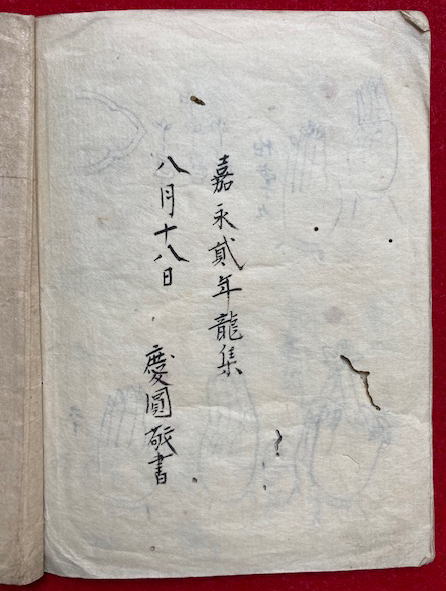 嘉永貳年龍集
八月十八日
慶圓敬書